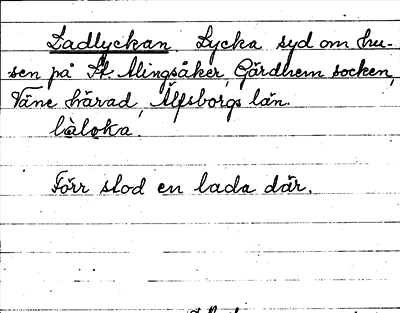 Ladlyckan, Lycka syd om hu-
sen på St. Alingsåker, Gärdhem socken,
Väne härad, Älfsborgs län.
làloka.
Förr stod en lada där.